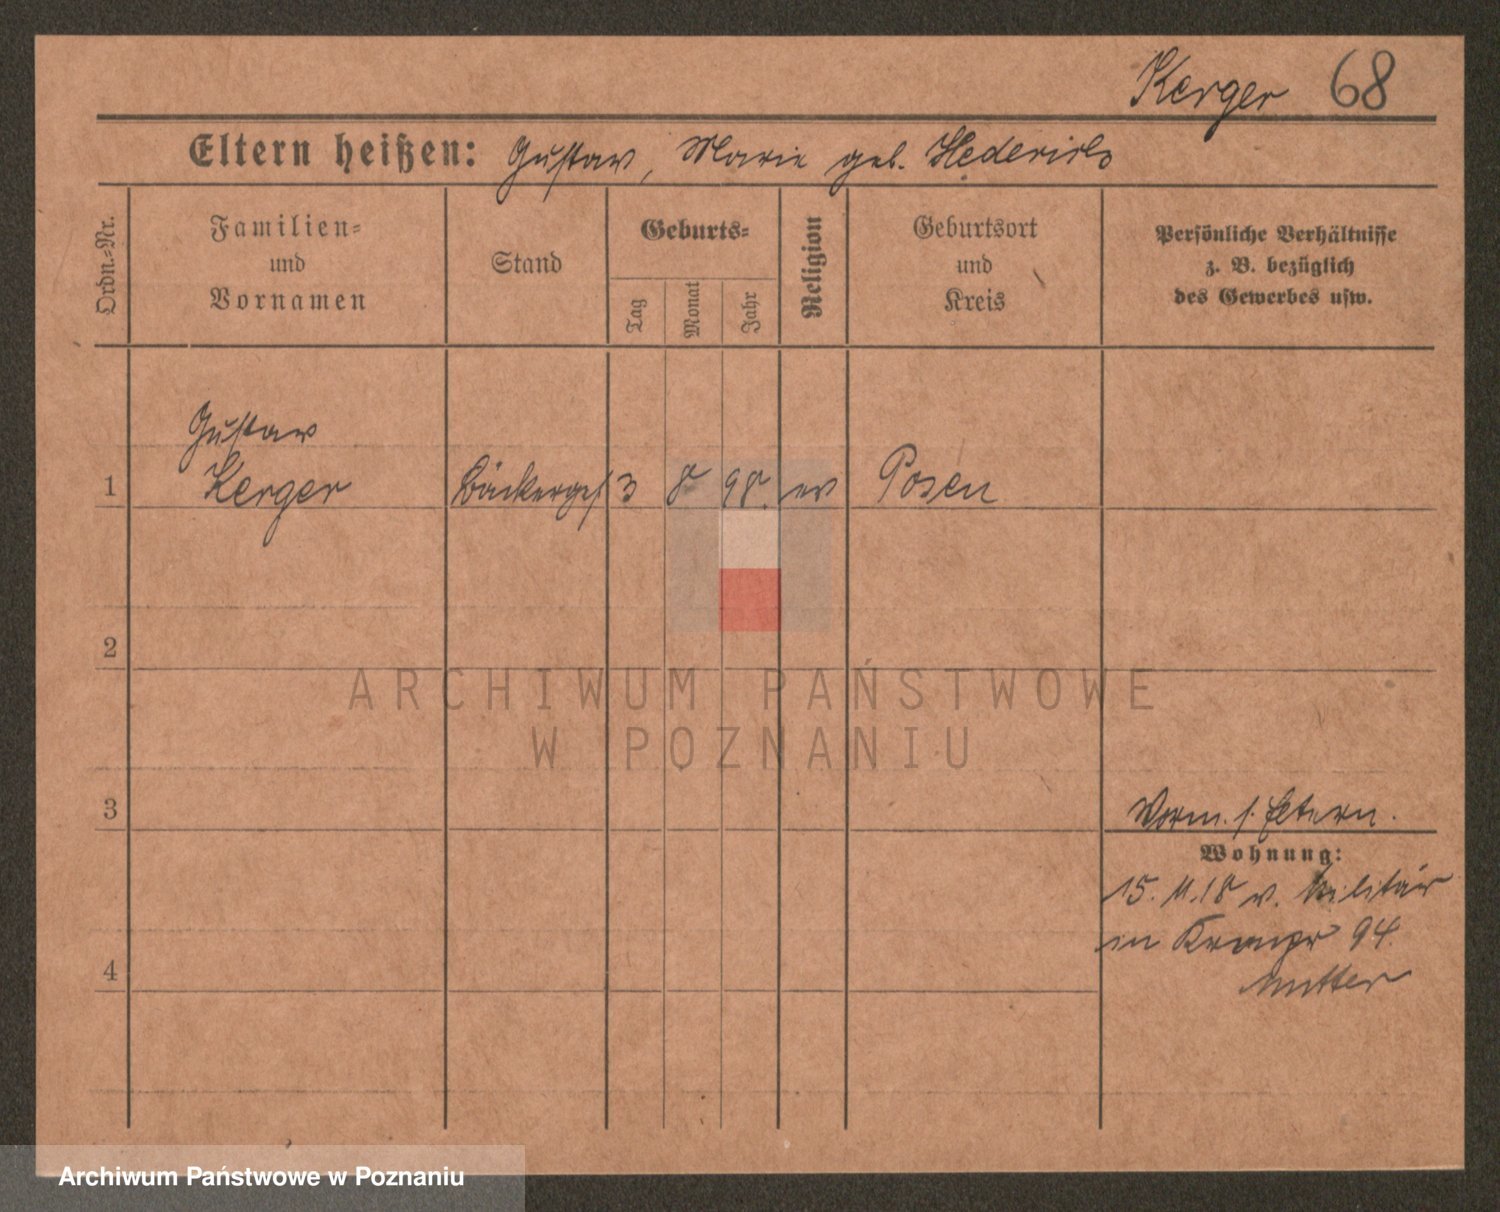 Kerger 68
Eltern heißen: Gustav, Marie geb. Hederichs
Ordn.-Nr.
Familien-
und
Vornamen
Stand
Geburts-
Tag
Monat
Jahr
Religion
Geburtsort
und
Kreis
Persönliche Verhältnisse
z. B. bezüglich
des Gewerbes usw.
Gustav
1 Kerger Bäckerges 3 8 98. ev Posen
2
ARCHIWUM PAŃSTWOWE
W POZNANIU
3
Vorm. s. Eltern.
Wohnung:
15. 11. 18 v. Militär
in 94.
4
Mutter
Archiwum Państwowe w Poznaniu